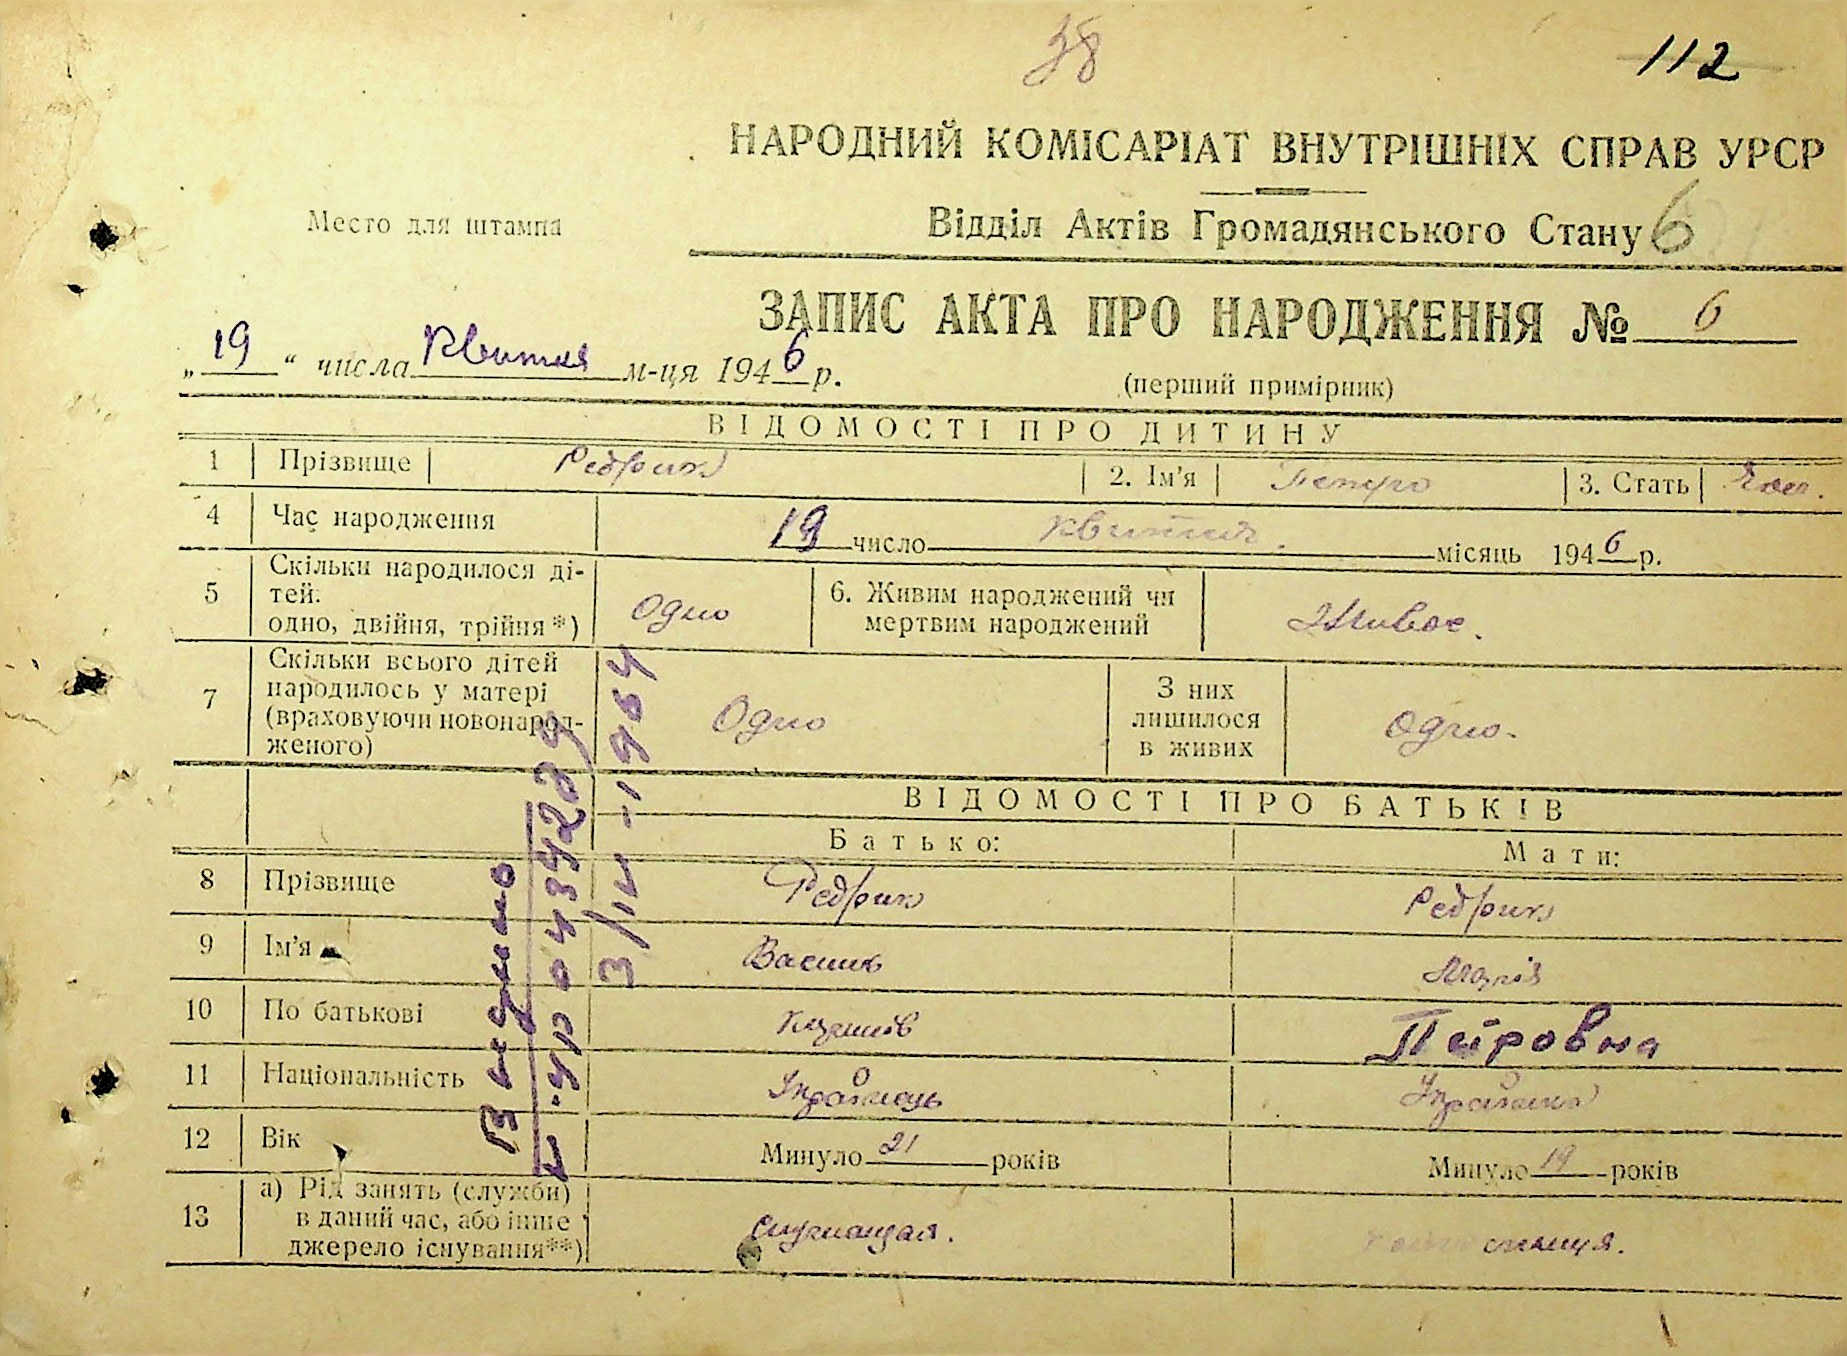 38
112
НАРОДНИЙ КОМІСАРІАТ ВНУТРІШНІХ СПРАВ УРСР
Место для штампа
Відділ Актів Громадянського Стану 6
ЗАПИС АКТА ПРО НАРОДЖЕННЯ № 6
„19“ числа Квитня м-ця 1946 р.
(перший примірник)
ВІДОМОСТІ ПРО ДИТИНУ
1 Прізвище Редрик 2. Ім'я Петро 3. Стать
4 Час народження 19 число квитня місяць 1946 р.
5 Скільки народилося ді-
тей:
одно, двійня, трійня*) Одно 6. Живим народжений чи
мертвим народжений Живое.
7 Скільки всього дітей
народилось у матері
(враховуючи новонарод-
женого) Одно З них
лишилося
в живих Одно.
ВІДОМОСТІ ПРО БАТЬКІВ
Батько: Мати:
8 Прізвище Редрик Редрик
9 Ім'я Василь Марія
10 По батькові Петровна
11 Національність Українець Українка
12 Вік Минуло 21 років Минуло 19 років
13 а) Рід занять (служби)
в даний час, або інше
джерело існування**)
Видано